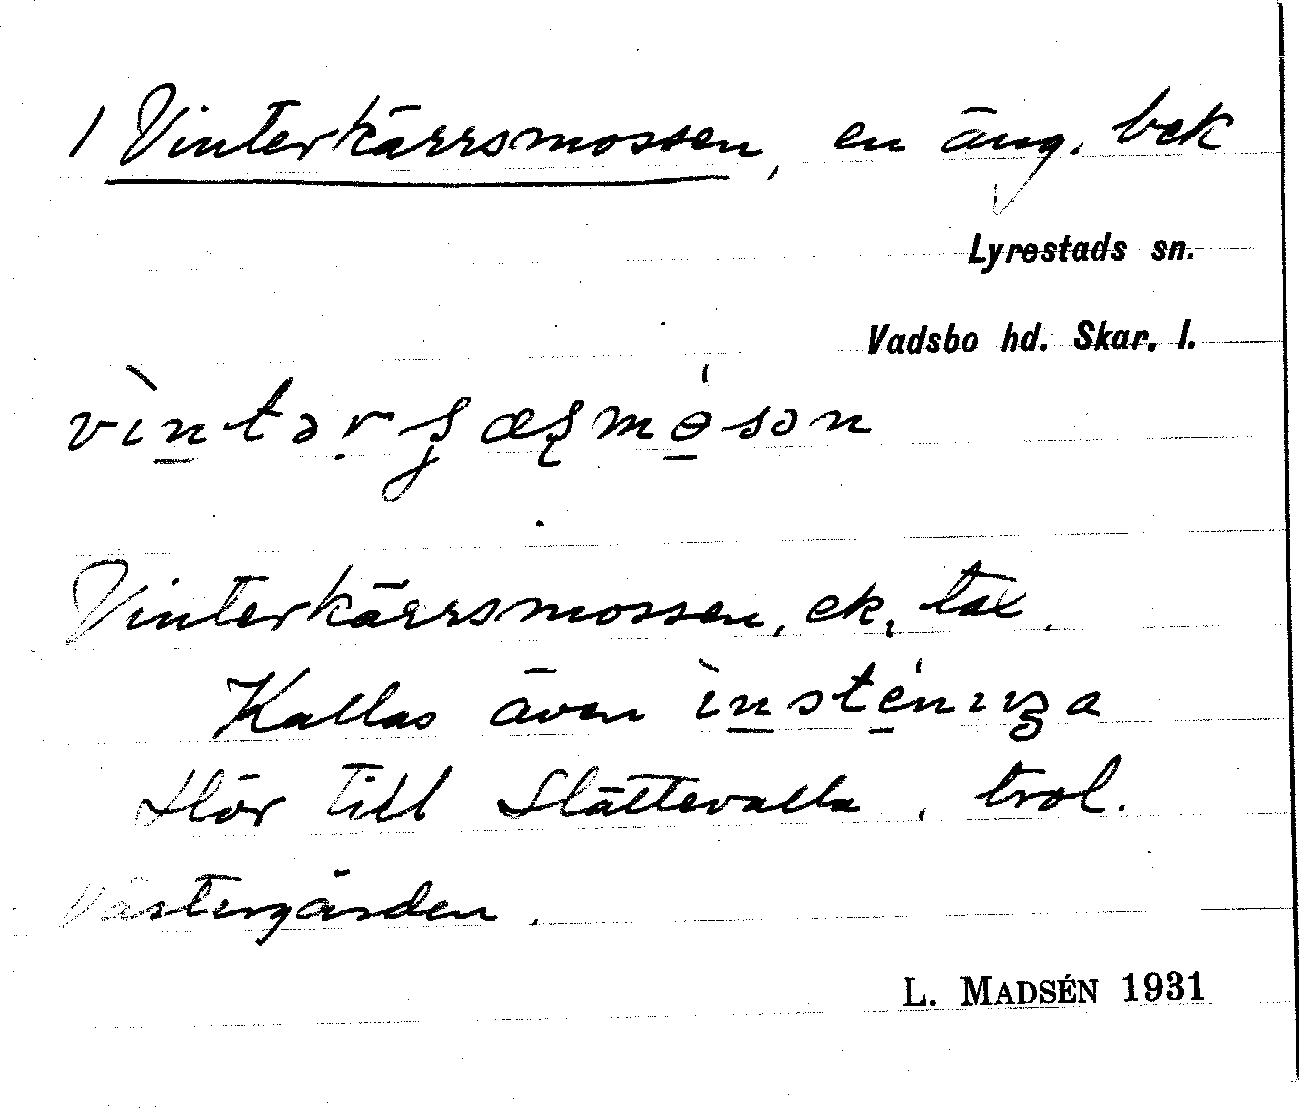 1 Vinterkärrsmossen, en äng. bek
Lyrestads sn.
Vadsbo hd. Skar. l.
Vinterkärrsmossen, ek, tax.
Kallas även
Hör till Slättevalla, trol.
Västergården.
L. MADSÉN 1931